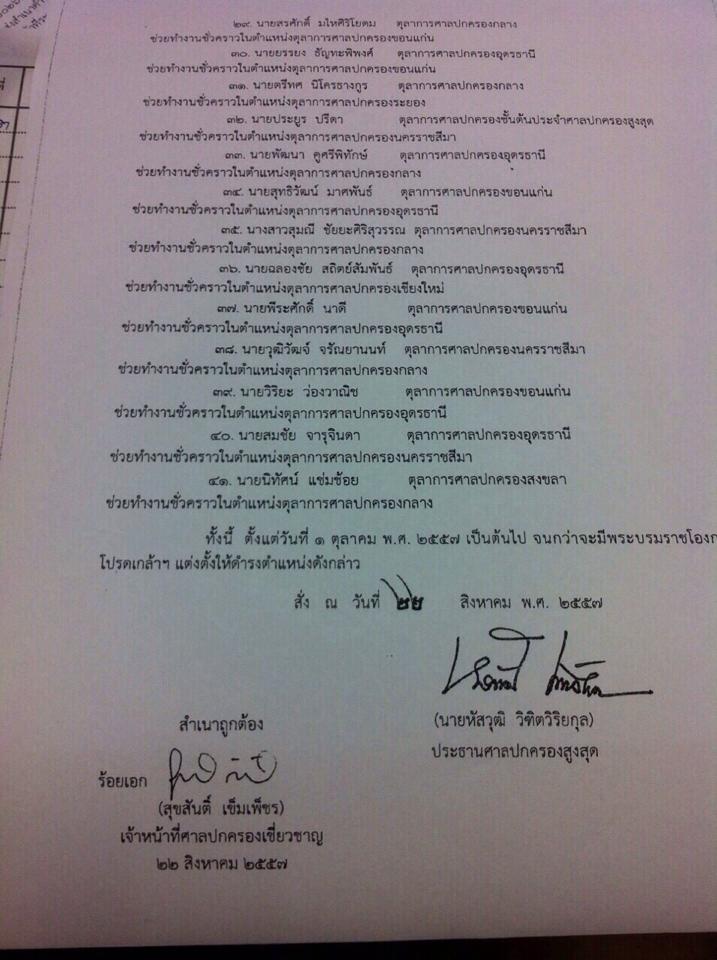 ๒๙. นายสรศักดิ์ มไหศิริโยดม ตุลาการศาลปกครองกลาง
ช่วยทำงานชั่วคราวในตำแหน่งตุลาการศาลปกครองขอนแก่น
๓๐. นายยรรยง ธัญทะพิพงศ์ ตุลาการศาลปกครองอุดรธานี
ช่วยทำงานชั่วคราวในตำแหน่งตุลาการศาลปกครองขอนแก่น
๓๑. นายตรีทศ นิโครธางกูร ตุลาการศาลปกครองกลาง
ช่วยทำงานชั่วคราวในตำแหน่งตุลาการศาลปกครองระยอง
๓๒. นายประยูร ปรีดา ตุลาการศาลปกครองชั้นต้นประจำศาลปกครองสูงสุด
ช่วยทำงานชั่วคราวในตำแหน่งตุลาการศาลปกครองนครราชสีมา
๓๓. นายพัฒนา คูศรีพิทักษ์ ตุลาการศาลปกครองอุดรธานี
ช่วยทำงานชั่วคราวในตำแหน่งตุลาการศาลปกครองกลาง
๓๔. นายสุทธิวัฒน์ มาศพันธ์ ตุลาการศาลปกครองขอนแก่น
ช่วยทำงานชั่วคราวในตำแหน่งตุลาการศาลปกครองอุดรธานี
๓๕. นางสาวสุมณี ชัยยะศิริสุวรรณ ตุลาการศาลปกครองนครราชสีมา
ช่วยทำงานชั่วคราวในตำแหน่งตุลาการศาลปกครองกลาง
๓๖. นายฉลองชัย สถิตย์สัมพันธ์ ตุลาการศาลปกครองอุดรธานี
ช่วยทำงานชั่วคราวในตำแหน่งตุลาการศาลปกครองเชียงใหม่
๓๗. นายพีระศักดิ์ นาดี ตุลาการศาลปกครองขอนแก่น
ช่วยทำงานชั่วคราวในตำแหน่งตุลาการศาลปกครองอุดรธานี
๓๘. นายวุฒิวัฒจ์ จรัณยานนท์ ตุลาการศาลปกครองนครราชสีมา
ช่วยทำงานชั่วคราวในตำแหน่งตุลาการศาลปกครองกลาง
๓๙. นายวิริยะ ว่องวาณิช ตุลาการศาลปกครองขอนแก่น
ช่วยทำงานชั่วคราวในตำแหน่งตุลาการศาลปกครองอุดรธานี
๔๐. นายสมชัย จารุจินดา ตุลาการศาลปกครองอุดรธานี
ช่วยทำงานชั่วคราวในตำแหน่งตุลาการศาลปกครองนครราชสีมา
๔๑. นายนิทัศน์ แช่มช้อย ตุลาการศาลปกครองสงขลา
ช่วยทำงานชั่วคราวในตำแหน่งตุลาการศาลปกครองกลาง
ทั้งนี้ ตั้งแต่วันที่ ๑ ตุลาคม พ.ศ. ๒๕๕๗ เป็นต้นไป จนกว่าจะมีพระบรมราชโองก
โปรดเกล้าฯ แต่งตั้งให้ดำรงตำแหน่งดังกล่าว
สั่ง ณ วันที่ ๒๒ สิงหาคม พ.ศ. ๒๕๕๗
(นายหัสวุฒิ วิฑิตวิริยกุล)
ประธานศาลปกครองสูงสุด
สำเนาถูกต้อง
ร้อยเอก
(สุขสันติ์ เข็มเพ็ชร)
เจ้าหน้าที่ศาลปกครองเชี่ยวชาญ
๒๒ สิงหาคม ๒๕๕๗